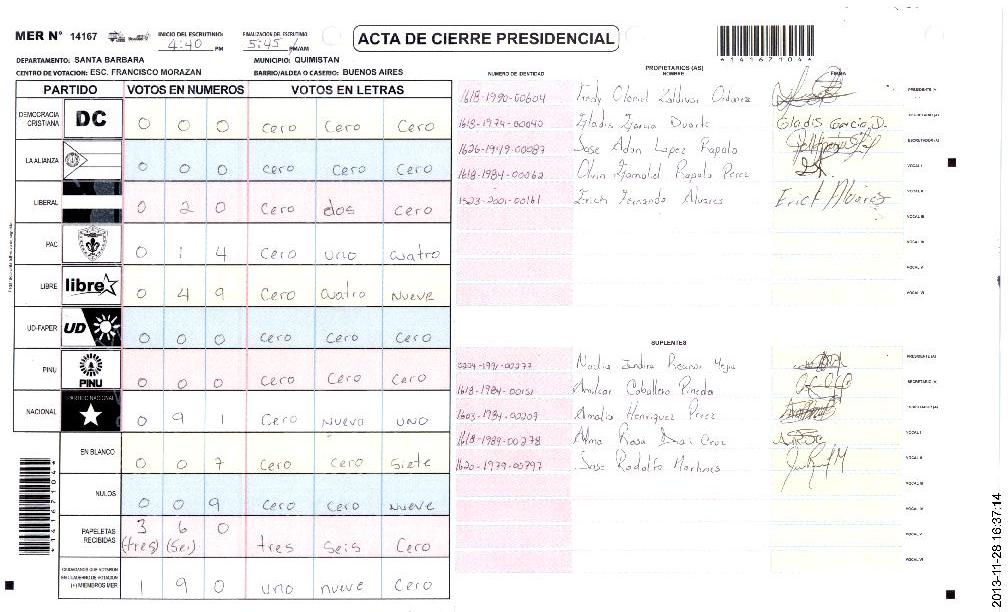 MER N° 14167
INICIO DEL ESCRUTINIO: 4:40 PM
FINALIZACION DEL ESCRUTINIO: 5:45 PM/AM
ACTA DE CIERRE PRESIDENCIAL
*14167104*
DEPARTAMENTO: SANTA BARBARA
MUNICIPIO: QUIMISTAN
CENTRO DE VOTACION: ESC. FRANCISCO MORAZAN
BARRIO/ALDEA O CASERIO: BUENOS AIRES
PARTIDO VOTOS EN NUMEROS VOTOS EN LETRAS
DEMOCRACIA CRISTIANA DC 0 0 0 Cero Cero Cero
LA ALIANZA 0 0 0 Cero Cero Cero
LIBERAL 0 2 0 Cero dos Cero
PAC 0 1 4 Cero uno cuatro
LIBRE libre 0 4 9 Cero cuatro Nueve
UD-FAPER UD 0 0 0 Cero Cero Cero
PINU PINU 0 0 0 Cero Cero Cero
NACIONAL PARTIDO NACIONAL 0 9 1 Cero Nueve UNO
EN BLANCO 0 0 7 Cero Cero Siete
NULOS 0 0 9 Cero Cero Nueve
PAPELETAS RECIBIDAS 3 6 0 (tres) (Sei) tres Seis Cero
CIUDADANOS QUE VOTARON EN CUADERNO DE VOTACION (+) MIEMBROS MER 1 9 0 uno nueve Cero
*14167104*
NUMERO DE IDENTIDAD
PROPIETARIOS (AS)
NOMBRE
FIRMA
1618-1990-00604 PRESIDENTE (A)
1618-1974-00040 Gladis Garcia Duarte Gladis Garcia D. SECRETARIO (A)
1626-1949-00087 Jose Adan Lopez Rapalo ESCRUTADOR (A)
1618-1984-00062 Rapalo Perez VOCAL I
1523-2001-00161 Erich Fernando Alvares Erich Alvarez VOCAL II
VOCAL III
VOCAL IV
VOCAL V
VOCAL VI
SUPLENTES
PRESIDENTE (A)
1618-1984-00151 Amilcar Caballero Pineda SECRETARIO (A)
1603-1984-00209 Amalia Henriquez Perez
1618-1989-00278 Alma Rosa Cruz VOCAL I
1620-1979-00797 Jose Rodolfo Martines VOCAL II
VOCAL III
VOCAL IV
VOCAL V
VOCAL VI
2013-11-28 16:37:14